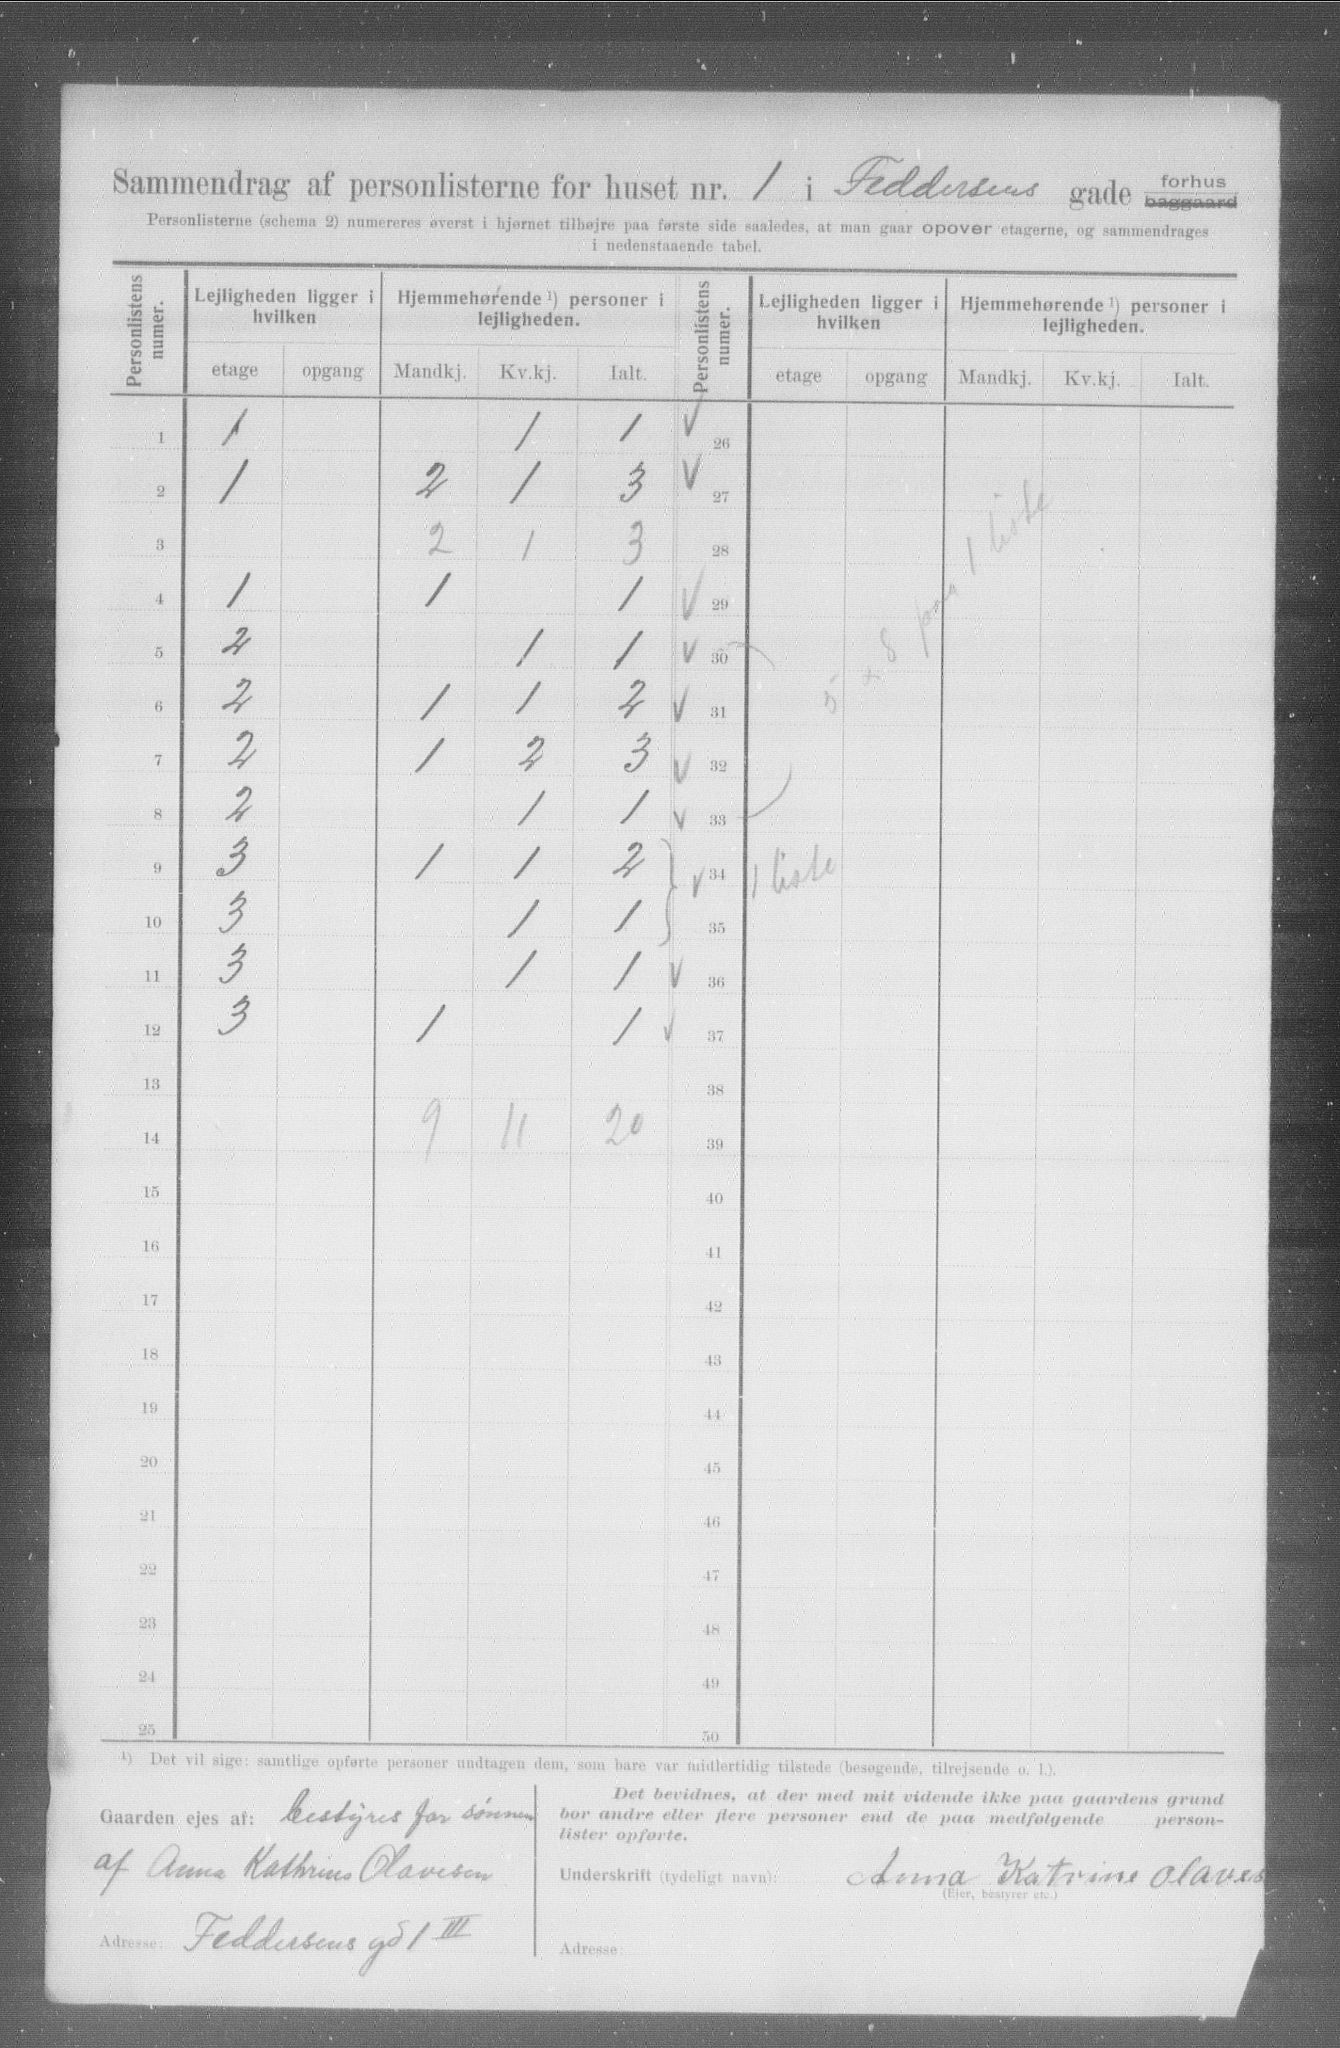 Sammendrag af personlisterne for huset nr. 1 i Feddersens gade forhus baggaard
Personlisterne (schema 2) numereres øverst i hjørnet tilhøjre paa første side saaledes, at man gaar opover etagerne, og sammendrages
i nedenstaaende tabel.
Personlistens numer. Lejligheden ligger i hvilken Hjemmehørende ¹) personer i lejligheden. Personlistens numer. Lejligheden ligger i hvilken Hjemmehørende ¹) personer i lejligheden.
etage opgang Mandkj. Kv.kj. Ialt. etage opgang Mandkj. Kv.kj. Ialt.
1 1 1 1 26
2 1 2 1 3 27
3 2 1 3 28
4 1 1 1 29
5 2 1 1 30
6 2 1 1 2 31
7 2 1 2 3 32
8 2 1 1 33
9 3 1 1 2 34
10 3 1 1 35
11 3 1 1 36
12 3 1 1 37
13 38
14 9 11 20 39
15 40
16 41
17 42
18 43
19 44
20 45
21 46
22 47
23 48
24 49
25 50
5 & 8 paa 1 liste
1 liste
¹) Det vil sige: samtlige opførte personer undtagen dem, som bare var midlertidig tilstede (besøgende, tilrejsende o. l.).
Gaarden ejes af: bestyres for sønnen
af Anna Kathrine Olavesen
Adresse: Feddersens gd 1 III
Det bevidnes, at der med mit vidende ikke paa gaardens grund
bor andre eller flere personer end de paa medfølgende person-
lister opførte.
Underskrift (tydeligt navn): Anna Katrine Olaves
(Ejer, bestyrer etc.)
Adresse: